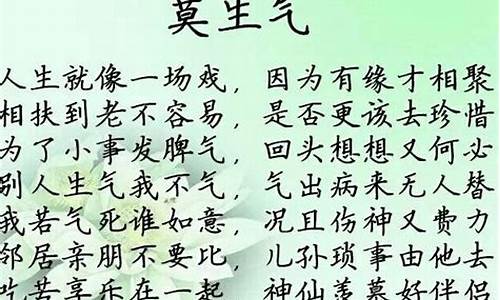 莫生气
人生就像一场戏，因为有缘才相聚
相扶到老不容易，是否更该去珍惜
为了小事发脾气，回头想想又何必
别人生气我不气，气出病来无人替
我若气死谁如意，况且伤神又费力
邻居亲朋不要比，儿孙琐事由他去
吃苦享乐在一起，神仙羡慕好伴侣